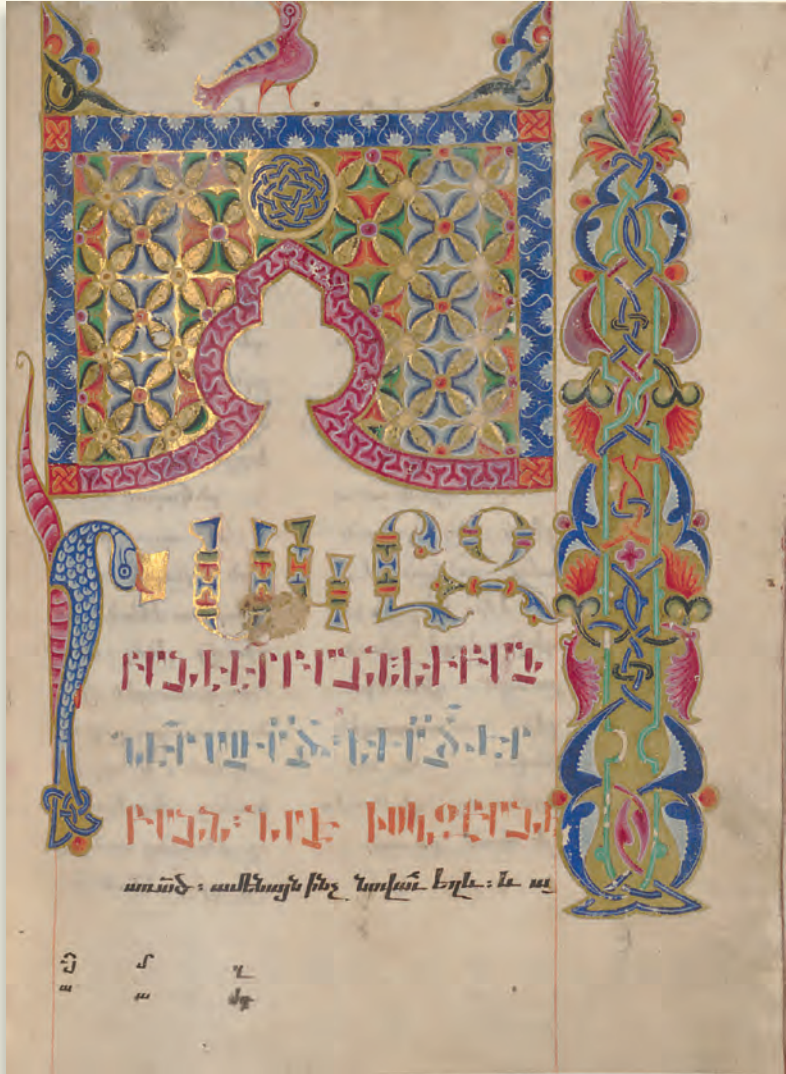 ԻՍԿԸԶ
ԲԱՆԷԷՐԲԱՆՆ։ԵՒԲԱՆ
ՆԷՐ ԱՌ ԱԾ։ ԵՒ ԱԾ ԷՐ
ԲԱՆՆ։ ՆԱԷՐ ԻՍԿԶԲԱՆ
առ ած։ ամենայն ինչ նովաւ եղև։ և ա